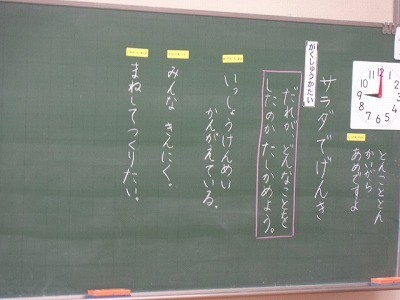 とんことんとん
かいがら
あめですよ
サラダでげんき
がくしゅうかだい
だれが どんなことを
したのか たしかめよう。
いっしょうけんめい
かんがえている。
みんな きんにく。
まねしてつくりたい。
12
11
10
9
8
7
6
5
4
3
2
1